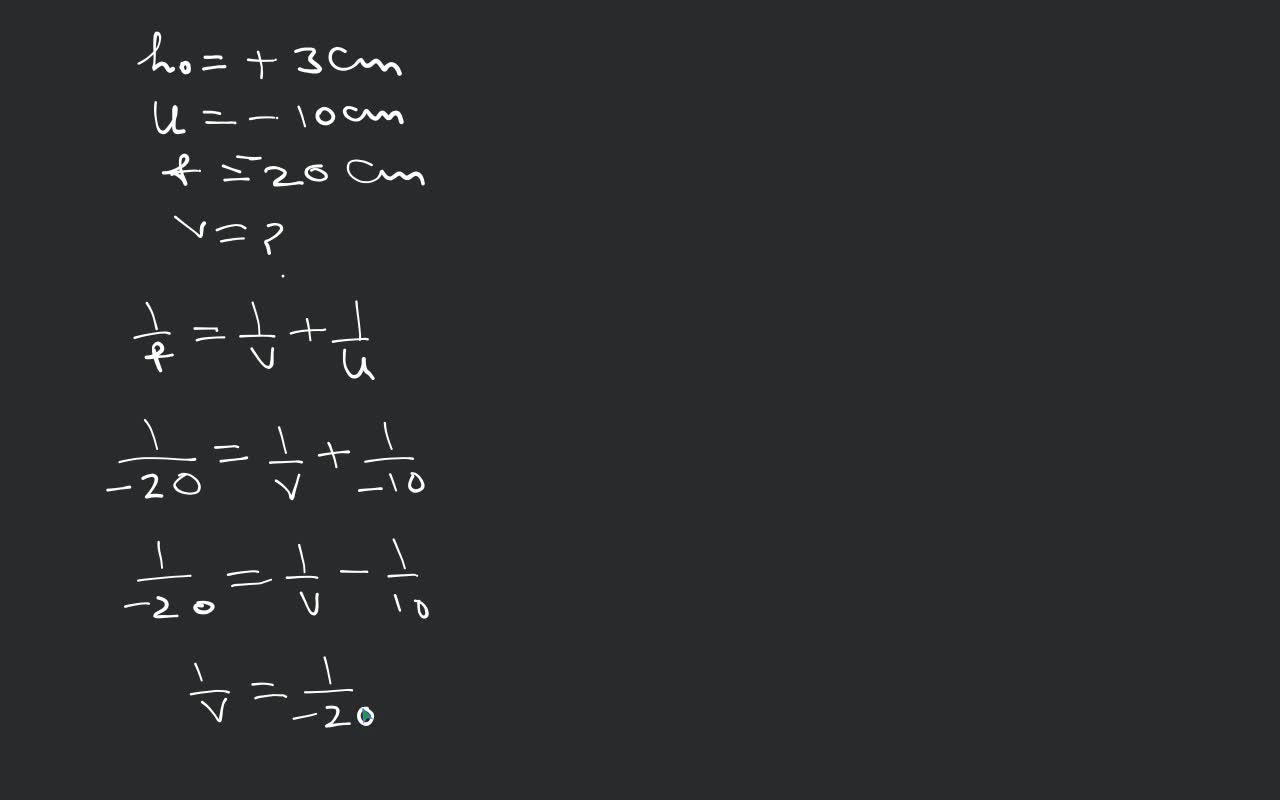 h₀ = + 3 cm
u = - 10 cm
f = -20 cm
v = ?
1/f = 1/v + 1/u
1/-20 = 1/v + 1/-10
1/-20 = 1/v - 1/10
1/v = 1/-20